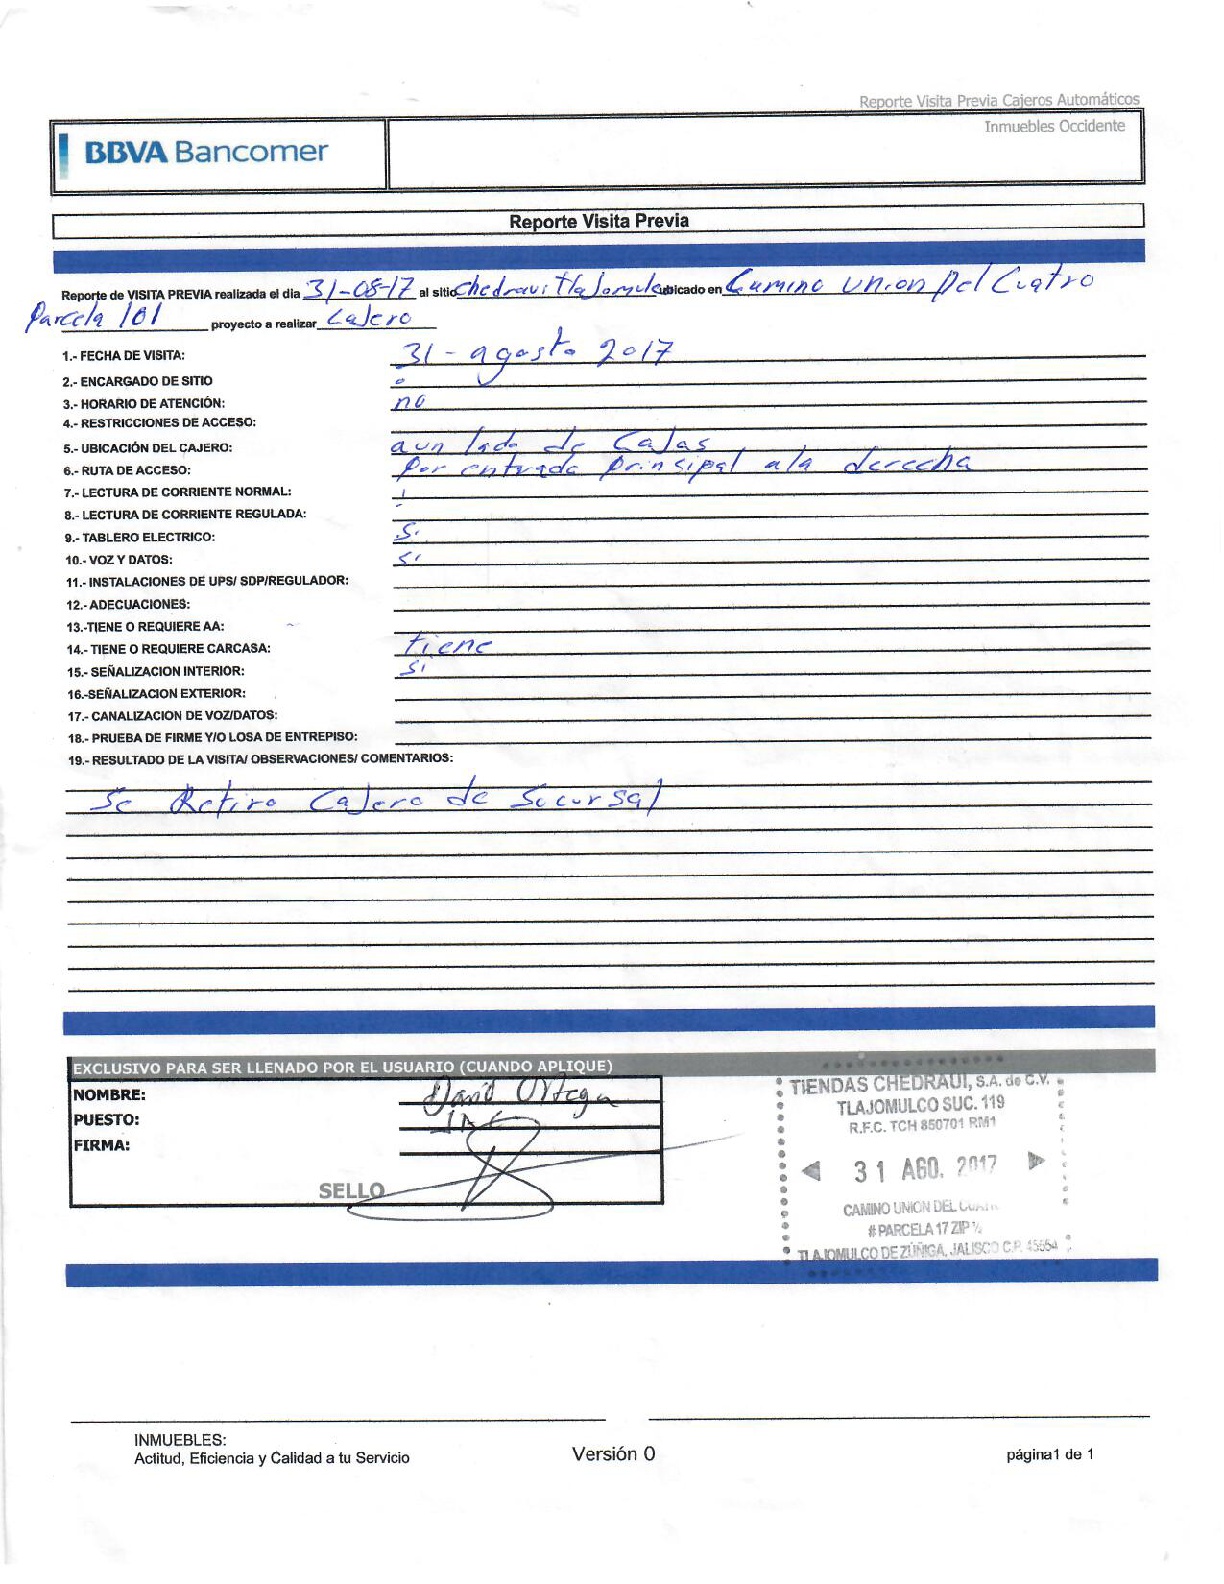 Reporte Visita Previa Cajeros Automáticos
Inmuebles Occidente
BBVA Bancomer
Reporte Visita Previa
Reporte de VISITA PREVIA realizada el dia 31-08-17 al sitio Chedraui Tlajomulco ubicado en Camino Union Del Cuatro
Parcela 101 proyecto a realizar Cajero
1.- FECHA DE VISITA: 31 - agosto 2017
2.- ENCARGADO DE SITIO
3.- HORARIO DE ATENCIÓN: no
4.- RESTRICCIONES DE ACCESO:
5.- UBICACIÓN DEL CAJERO: aun lado de Cajas
6.- RUTA DE ACCESO: Por entrada prinsipal ala derecha
7.- LECTURA DE CORRIENTE NORMAL:
8.- LECTURA DE CORRIENTE REGULADA:
9.- TABLERO ELECTRICO: Si
10.- VOZ Y DATOS: Si
11.- INSTALACIONES DE UPS/ SDP/REGULADOR:
12.- ADECUACIONES:
13.-TIENE O REQUIERE AA:
14.- TIENE O REQUIERE CARCASA: tiene
15.- SEÑALIZACION INTERIOR: Si
16.-SEÑALIZACION EXTERIOR:
17.- CANALIZACION DE VOZ/DATOS:
18.- PRUEBA DE FIRME Y/O LOSA DE ENTREPISO:
19.- RESULTADO DE LA VISITA/ OBSERVACIONES/ COMENTARIOS:
Se Retiro Cajero de Sucursal
EXCLUSIVO PARA SER LLENADO POR EL USUARIO (CUANDO APLIQUE)
NOMBRE: David Ortega
PUESTO:
FIRMA:
SELLO
TIENDAS CHEDRAUI, S.A. de C.V.
TLAJOMULCO SUC. 119
R.F.C. TCH 850701 RM1
31 AGO. 2017
CAMINO UNION DEL
#PARCELA 17 ZIP ½
TLAJOMULCO DE ZÚÑIGA, JALISCO C.P.
INMUEBLES:
Actitud, Eficiencia y Calidad a tu Servicio
Versión 0
página1 de 1